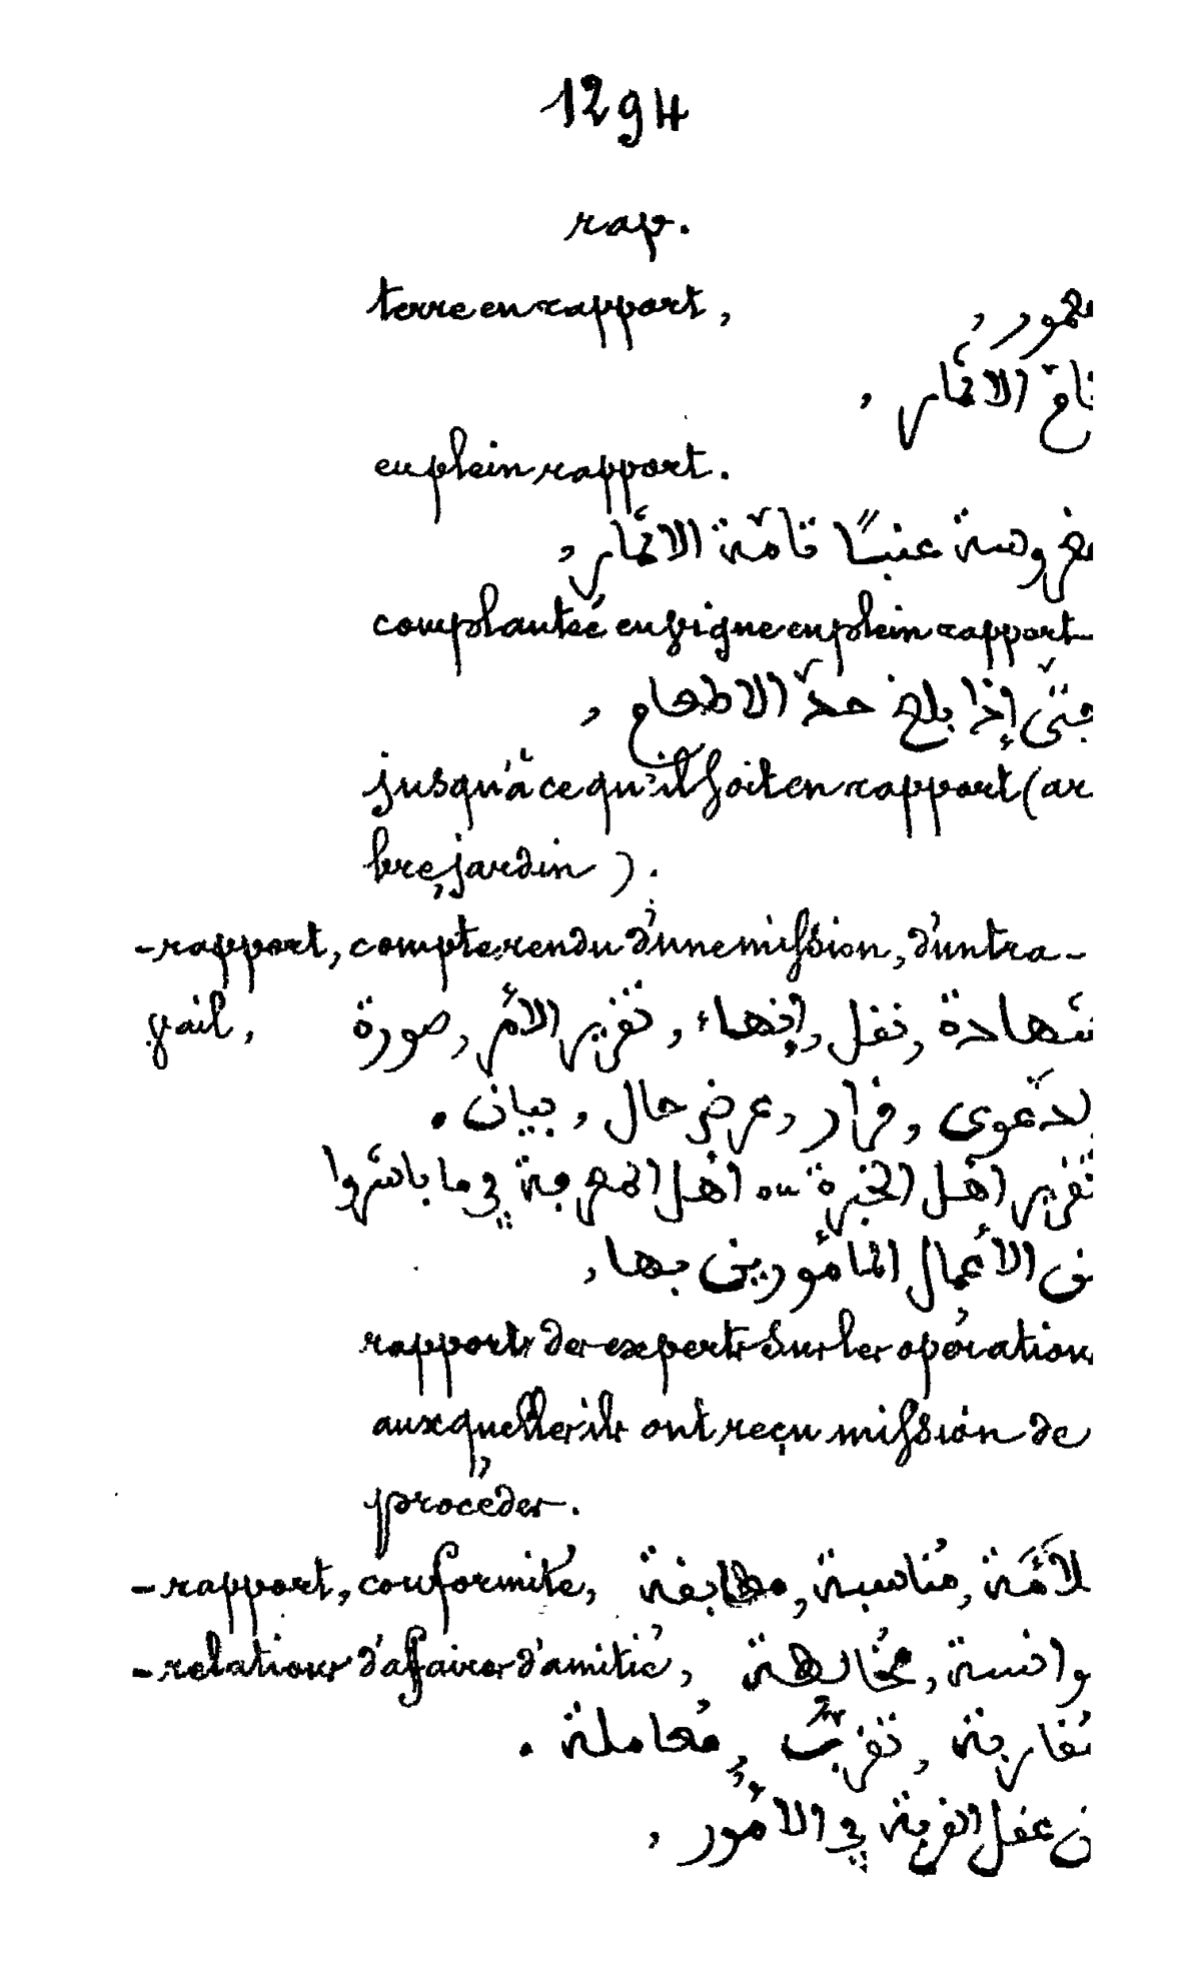 1294
rap.
terre en rapport,
الاثمار ,
en plein rapport.
عنبًا تامّة الاثمار ,
complantée en vigne en plein rapport
إذا بلغ حدّ الاطعام ,
jusqu'à ce qu'il soit en rapport (ar
bre, jardin).
- rapport, compte rendu d'une mission, d'un tra-
vail, شهادة , نقل , إنهاء , تقرير الأمر , صورة
لدّعوى , قرار , عرض حال , بيان .
تقرير اهل الخبرة ou اهل المعرفة في ما باشروا
ن الأعمال المأمورين بها ,
rapports des experts sur les opération
auxquelles ils ont reçu mission de
procéder.
- rapport, conformité, مُناسبة , مطابقة
- relations d'affaires d'amitié, وانسة , مُخالطة
مُقاربة , تقرّبٌ , مُعاملة .
ن عقل الفرقة في الأمور ,